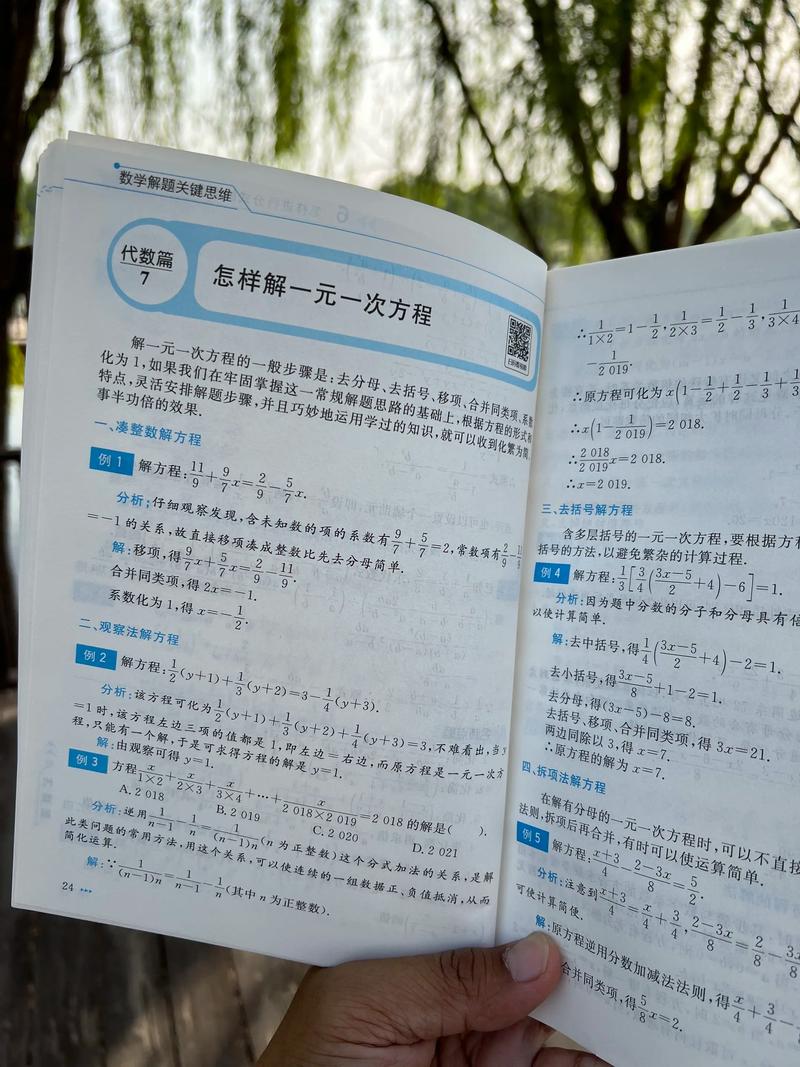 数学解题关键思维
代数篇
7
怎样解一元一次方程
解一元一次方程的一般步骤是:去分母、去括号、移项、合并同类项、系数
化为1,如果我们在牢固掌握这一常规解题思路的基础上,根据方程的形式和
特点,灵活安排解题步骤,并且巧妙地运用学过的知识,就可以收到化繁为简、
事半功倍的效果.
一、凑整数解方程
例1 解方程:11/9+9/7x=2/9-5/7x.
分析:仔细观察发现,含未知数的项的系数有9/7+5/7=2,常数项有2/9-11/9
=-1的关系,故直接移项凑成整数比先去分母简单.
解:移项,得9/7x+5/7x=2/9-11/9.
合并同类项,得2x=-1.
系数化为1,得x=-1/2.
二、观察法解方程
例2 解方程:1/2(y+1)+1/3(y+2)=3-1/4(y+3).
分析:该方程可化为1/2(y+1)+1/3(y+2)+1/4(y+3)=3,不难看出,当y
=1时,该方程左边三项的值都是1,即左边=右边,而原方程是一元一次方
程,只能有一个解,于是可求得方程的解是y=1.
解:由观察可得y=1.
例3 方程x/1×2+x/2×3+x/3×4+…+x/2 018×2 019=2 018的解是( ).
A. 2 018 B. 2 019 C. 2 020 D. 2 021
分析:逆用1/n-1-1/n=1/(n-1)n(n为正整数)这个分式加法的关系,是解
此类问题的常用方法,用这个关系,可以使连续的一组数据正、负值抵消,从而
简化运算.
解:∵1/(n-1)n=1/n-1-1/n(其中n为正整数).
24
∴1/1×2=1-1/2,1/2×3=1/2-1/3,1/3×4
-1/2 019.
∴原方程可化为x(1-1/2+1/2-1/3+1/3
∴x(1-1/2 019)=2 018.
∴2 018/2 019x=2 018.
∴x=2 019.
三、去括号解方程
含多层括号的一元一次方程,要根据方程
括号的方法,以避免繁杂的计算过程.
例4 解方程:1/3[3/4(3x-5/2+4)-6]=1.
分析:因为题中分数的分子和分母具有倍
以使计算简单.
解:去中括号,得1/4(3x-5/2+4)-2=1.
去小括号,得3x-5/8+1-2=1.
去分母,得(3x-5)-8=8.
去括号、移项、合并同类项,得3x=21.
两边同除以3,得x=7.
∴原方程的解为x=7.
四、拆项法解方程
在解有分母的一元一次方程时,可以不直接
法则,拆项后再合并,有时可以使运算简单.
例5 解方程:x+3/4-2-3x/8=5/2.
分析:注意到x+3/4=x/4+3/4,2-3x/8=2/8-3x
可使计算简便.
解:原方程逆用分数加减法法则,得x/4+3/4-
合并同类项,得5/8x=2.